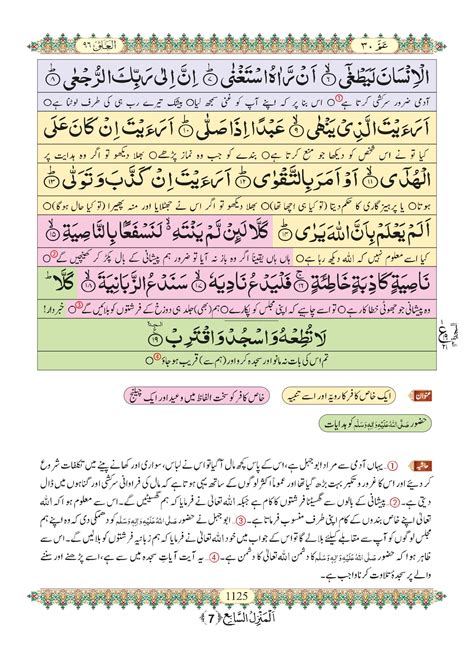 عَمَّ ٣٠
اَلْعَلَق ٩٦
الْاِنْسَانَ لَیَطْغٰۤىۙ ۶ اَنْ رَّاٰهُ اسْتَغْنٰىؕ ۷ اِنَّ اِلٰى رَبِّكَ الرُّجْعٰىؕ ۸
آدمی ضرور سرکشی کرتا ہے ① اس بنا پر کہ اپنے آپ کو غنی سمجھ لیا بیشک تیرے رب ہی کی طرف لوٹنا ہے
اَرَءَیْتَ الَّذِیْ یَنْهٰىۙ ۹ عَبْدًا اِذَا صَلّٰىؕ ۱۰ اَرَءَیْتَ اِنْ كَانَ عَلَى
کیا تو نے اس شخص کو دیکھا جو منع کرتا ہے بندے کو جب وہ نماز پڑھے بھلا دیکھو تو اگر وہ ہدایت پر
الْهُدٰۤىۙ ۱۱ اَوْ اَمَرَ بِالتَّقْوٰىؕ ۱۲ اَرَءَیْتَ اِنْ كَذَّبَ وَ تَوَلّٰىؕ ۱۳
ہوتا یا پرہیزگاری کا حکم دیتا (تو کیا ہی اچھا تھا) بھلا دیکھو تو اگر اس نے جھٹلایا اور منہ پھیرا (تو کیا حال ہوگا)
اَلَمْ یَعْلَمْ بِاَنَّ اللّٰهَ یَرٰىؕ ۱۴ كَلَّا لَىٕنْ لَّمْ یَنْتَهِ ﳔ لَنَسْفَعًۢا بِالنَّاصِیَةِۙ ۱۵
کیا اسے معلوم نہیں کہ اللہ دیکھ رہا ہے ہاں ہاں یقیناً اگر وہ باز نہ آیا تو ضرور ہم پیشانی کے بال پکڑ کر کھینچیں گے ②
نَاصِیَةٍ كَاذِبَةٍ خَاطِئَةٍۚ ۱۶ فَلْیَدْعُ نَادِیَهٗۙ ۱۷ سَنَدْعُ الزَّبَانِیَةَۙ ۱۸ كَلَّاؕ
وہ پیشانی جو جھوٹی خطاکار ہے تو اسے چاہیے کہ اپنی مجلس کو پکارے ہم (بھی) جلد ہی دوزخ کے فرشتوں کو بلائیں گے ③ خبردار!
لَا تُطِعْهُ وَ اسْجُدْ وَ اقْتَرِبْ۠۩ ۱۹
تم اس کی بات نہ مانو اور سجدہ کرو اور (ہم سے) قریب ہو جاؤ ④
عنوان
ایک خاص کافر کا رویہ اور اسے تنبیہ
خاص کافر کو سخت الفاظ میں وعید اور ایک چیلنج
حضور صَلَّی اللّٰہُ عَلَیْہِ وَاٰلِہٖ وَسَلَّم کو ہدایات
حاشیہ ①۔ یہاں آدمی سے مراد ابوجہل ہے، اس کے پاس کچھ مال آ گیا تو اس نے لباس، سواری اور کھانے پینے میں تکلفات شروع
کر دئیے اور اس کا غرور و تکبر بہت بڑھ گیا تھا اور عمومی طور پر لوگوں کے ساتھ یہی ہوتا ہے کہ مال کی فراوانی سرکشی اور گناہوں میں ڈال
دیتی ہے۔ ②۔ پیشانی کے بالوں سے گھسیٹنا فرشتوں کا کام ہے جبکہ اللہ تعالیٰ نے فرمایا کہ ہم گھسیٹیں گے۔ اس سے معلوم ہوا کہ اللہ
تعالیٰ اپنے خاص بندوں کے کام کو اپنی طرف منسوب فرماتا ہے۔ ③۔ ابوجہل نے حضور صَلَّی اللّٰہُ عَلَیْہِ وَاٰلِہٖ وَسَلَّم کو دھمکی دی کہ وہ اپنے ہم
مجلس لوگوں کو آپ سے مقابلے کیلئے بلالے گا تو اس کے جواب میں خود اللہ تعالیٰ نے فرمایا کہ ہم زبانیہ فرشتوں کو بلائیں گے۔ اس سے
ظاہر ہوا کہ حضور صَلَّی اللّٰہُ عَلَیْہِ وَاٰلِہٖ وَسَلَّم کا دشمن اللہ تعالیٰ کا دشمن ہے۔ ④۔ یہ آیت آیاتِ سجدہ میں سے ہے، اسے پڑھنے اور سننے
والے پر سجدۂ تلاوت کرنا واجب ہے۔
1125
اَلْمَنْزِلُ السَّابِع ﴿7﴾